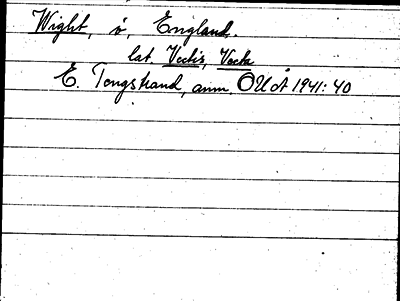 Wight, ö, England.
lat Vectis, Vecta
E. Tengstrand, anm ÖUÅ 1941: 40